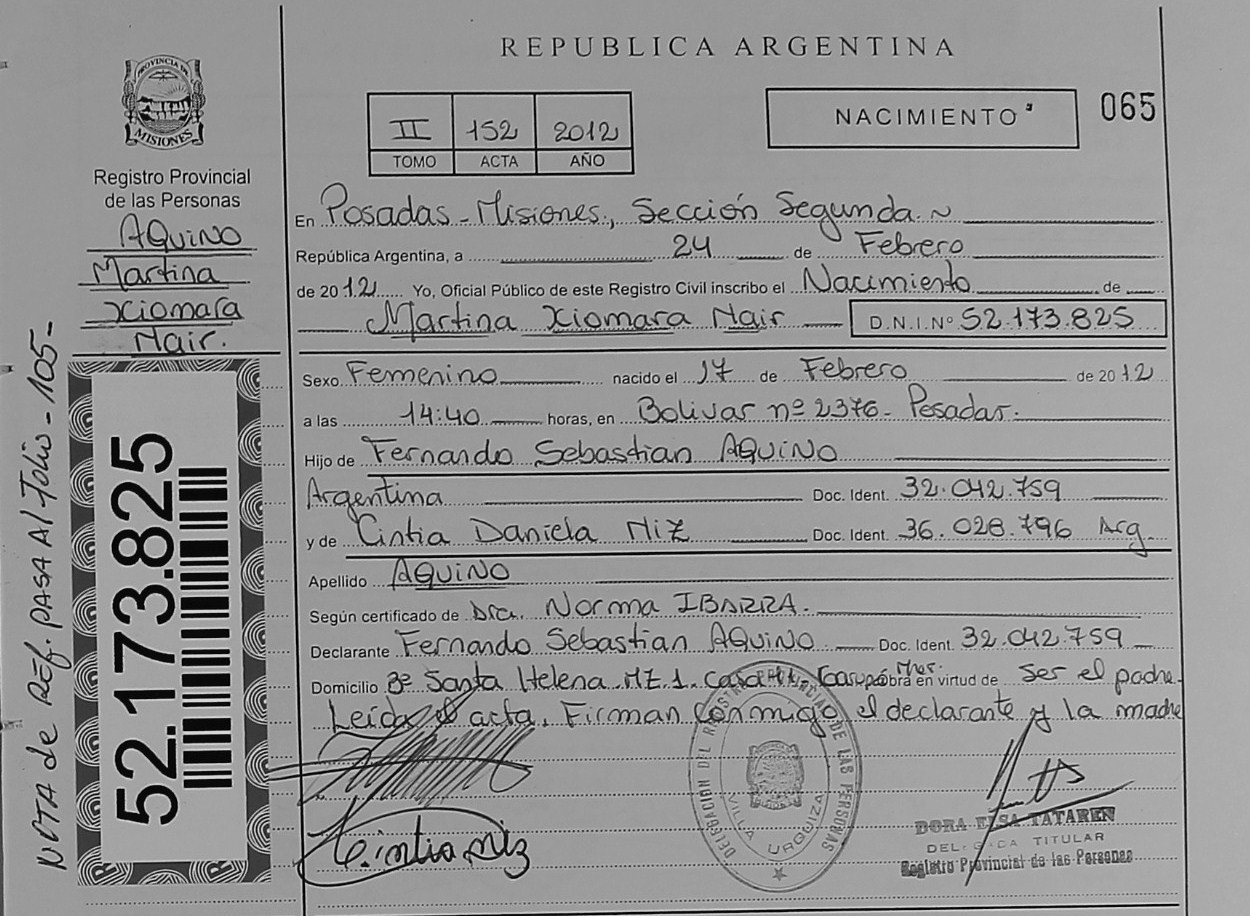 REPUBLICA ARGENTINA
PROVINCIA DE
MISIONES
Registro Provincial
de las Personas
AQUINO
Martina
Xiomara
Nair.
II 152 2012
TOMO ACTA AÑO
NACIMIENTO
065
En Posadas - Misiones, Sección Segunda.
República Argentina, a 24 de Febrero
de 2012 Yo, Oficial Público de este Registro Civil inscribo el Nacimiento de
Martina Xiomara Nair D.N.I. Nº 52.173.825
Sexo Femenino nacido el 17 de Febrero de 2012
a las 14:40 horas, en Bolivar nº 2376 - Posadas.
Hijo de Fernando Sebastian AQUINO
Argentina Doc. Ident. 32.042.759
y de Cintia Daniela Niz Doc. Ident. 36.028.796 Arg.
Apellido AQUINO
Según certificado de Dra. Norma IBARRA.
Declarante Fernando Sebastian AQUINO Doc. Ident. 32.042.759
Domicilio Bº Santa Helena MZ. 1. Casa Garupá Mnes. obra en virtud de Ser el padre.
Leída el acta, Firman conmigo, el declarante y la madre
Cintia Niz
DELEGACION DEL REGISTRO PROVINCIAL DE LAS PERSONAS
VILLA URQUIZA
DORA ELSA TATAREN
DELEGADA TITULAR
Registro Provincial de las Personas
52.173.825
NOTA de REf. PASA Al folio - 105 -